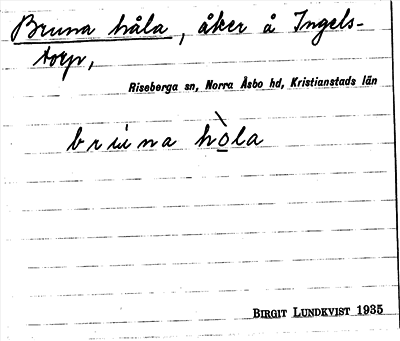 Bruna håla, åker å Ingels-
torp,
Riseberga sn, Norra Åsbo hd, Kristianstads län
bruna hòla
BIRGIT LUNDKVIST 1935